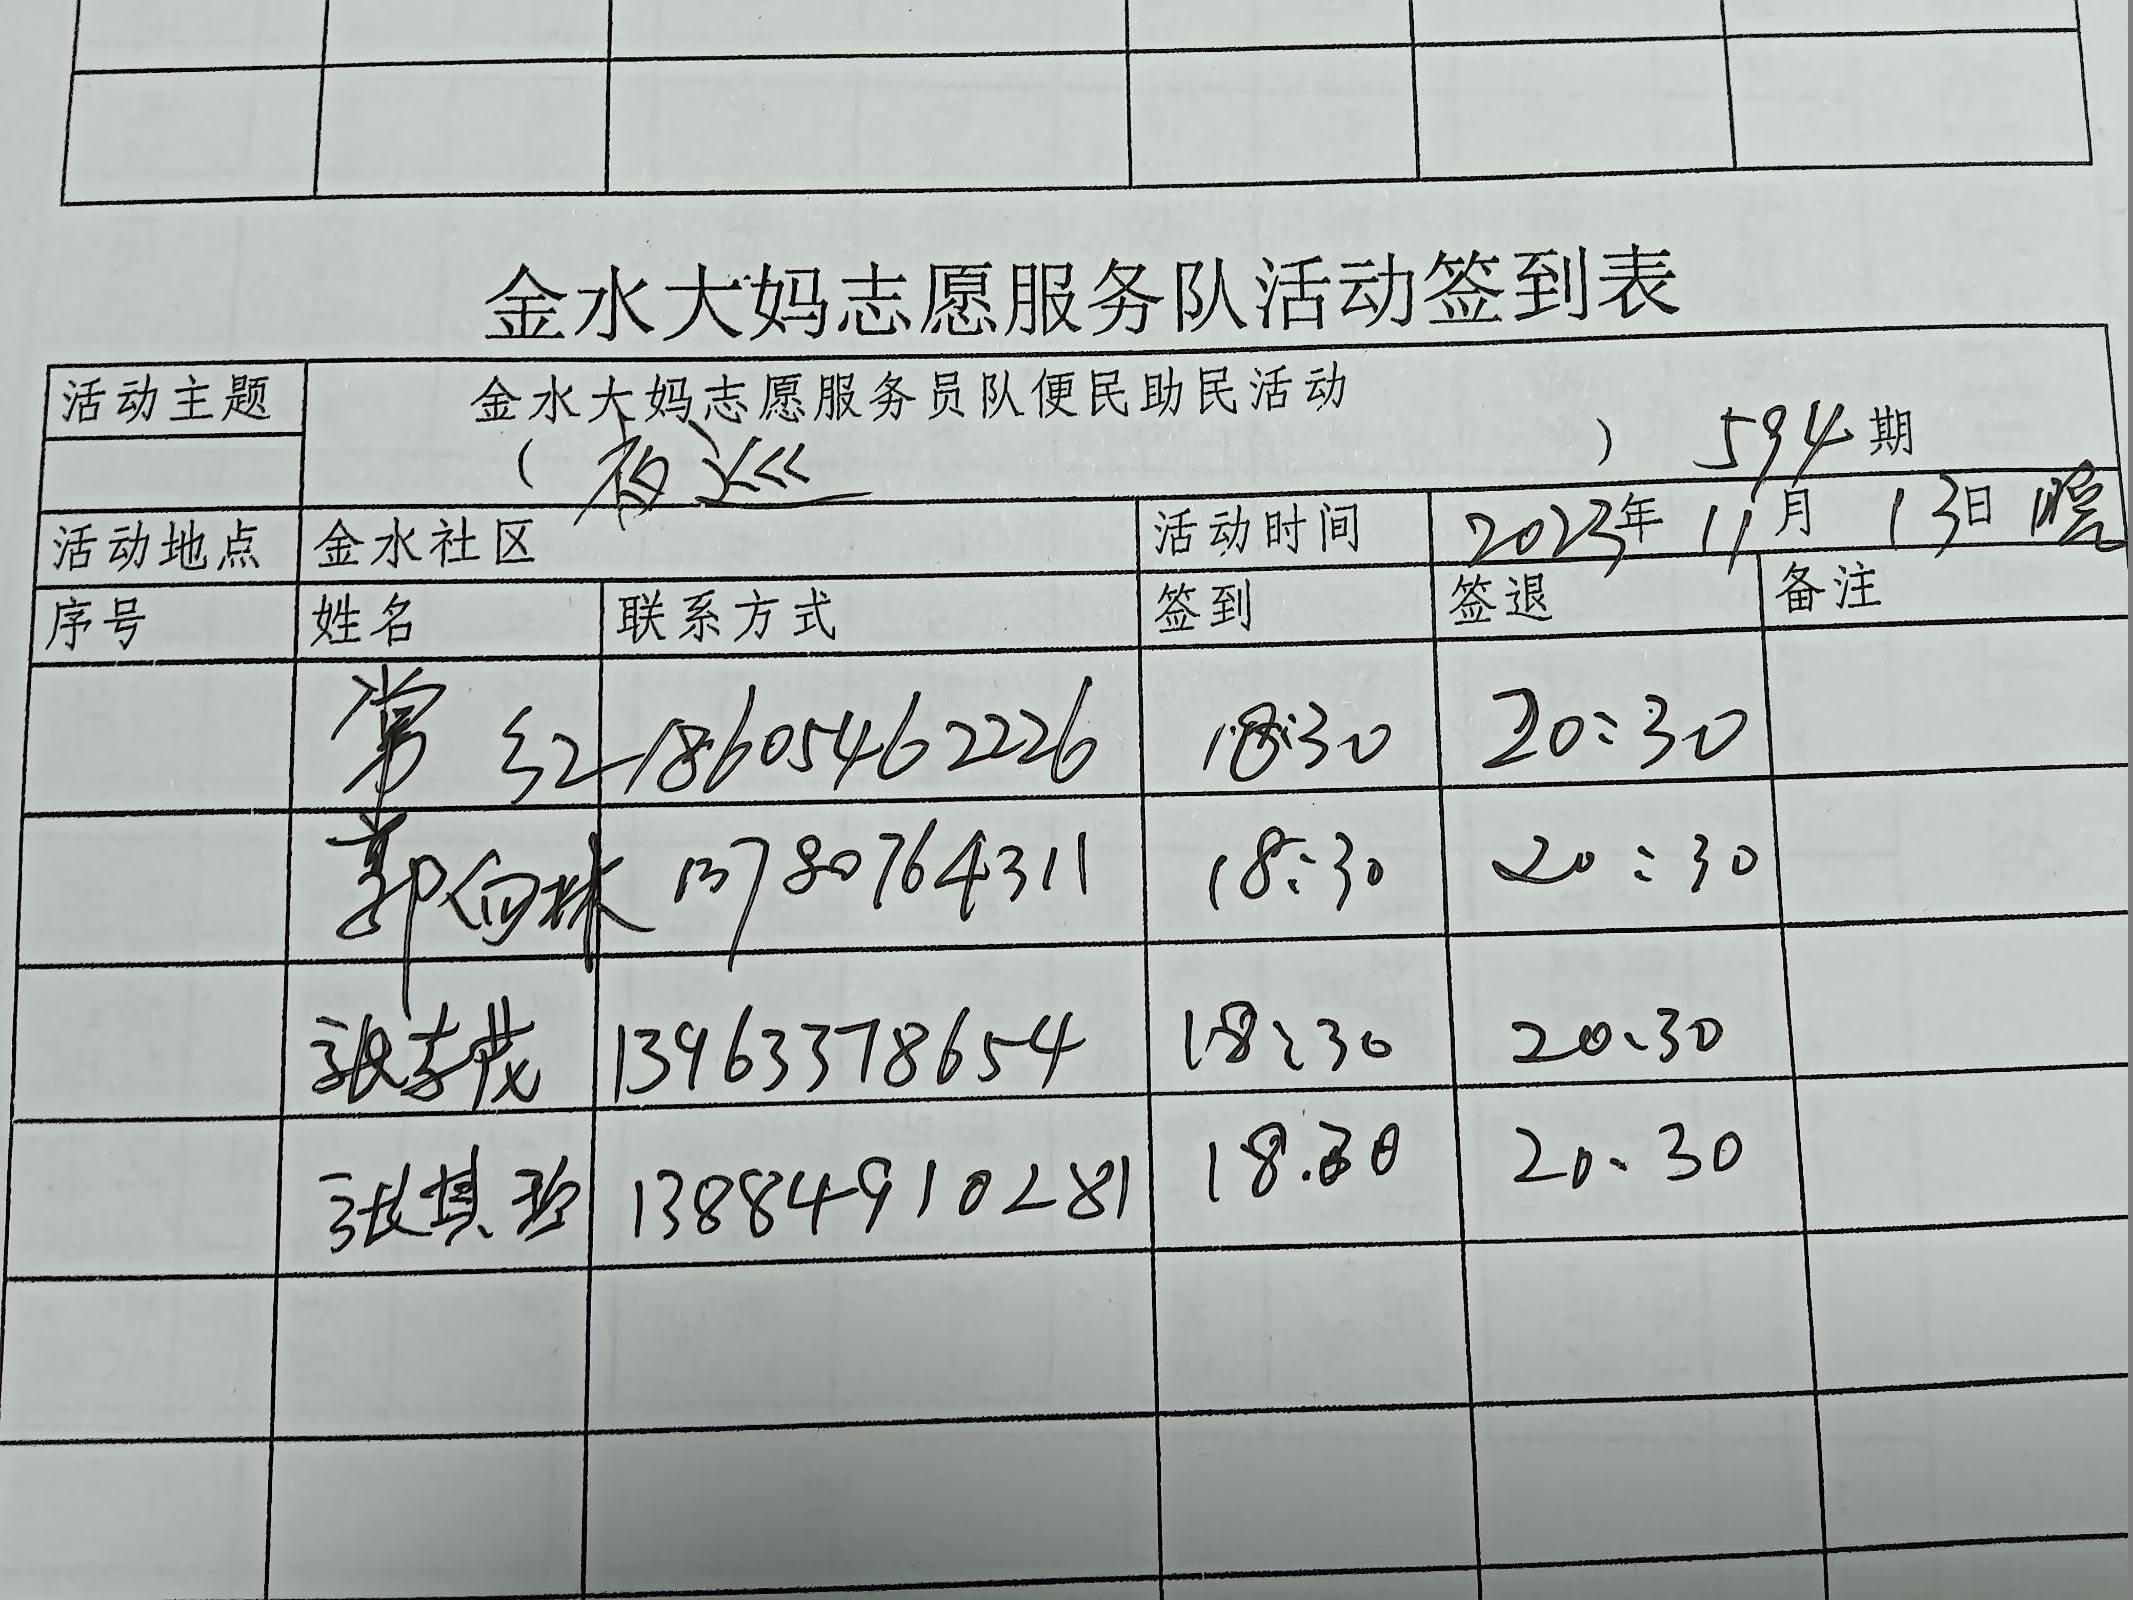 金水大妈志愿服务队活动签到表
活动主题 金水大妈志愿服务员队便民助民活动
（ 夜巡 ） 594期
活动地点 金水社区 活动时间 2023年 11月 13日 晚
序号 姓名 联系方式 签到 签退 备注
常红 18605462226 18:30 20:30
郭向林 13780764311 18:30 20:30
张茂 13963378654 18:30 20:30
张其珍 13884910281 18.30 20.30